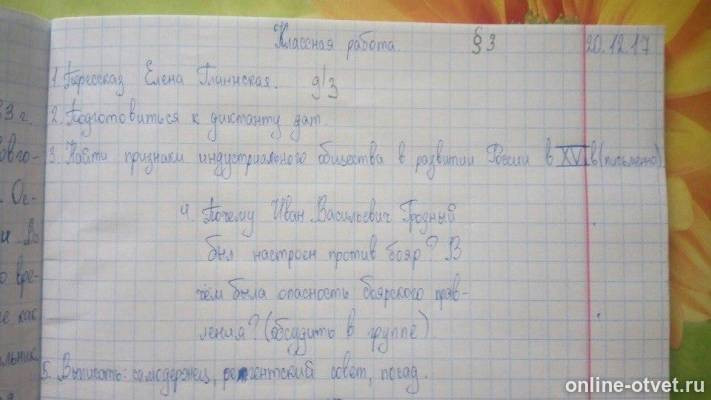 Классная работа. § 3 20.12.17
1. Пересказ Елена Глинская. д/з
2. Подготовиться к диктанту дат.
3. Найти признаки индустриального общества в развитии России в XVI в (письменно)
4. Почему Иван Васильевич Грозный
был настроен против бояр? В
чём была опасность боярского прав-
ления? (обсудить в группе).
5. Выписать: самодержец, регентский совет, посад.
3 г.
ово-
Ос-
и
вре-
е как
альник
online-otvet.ru